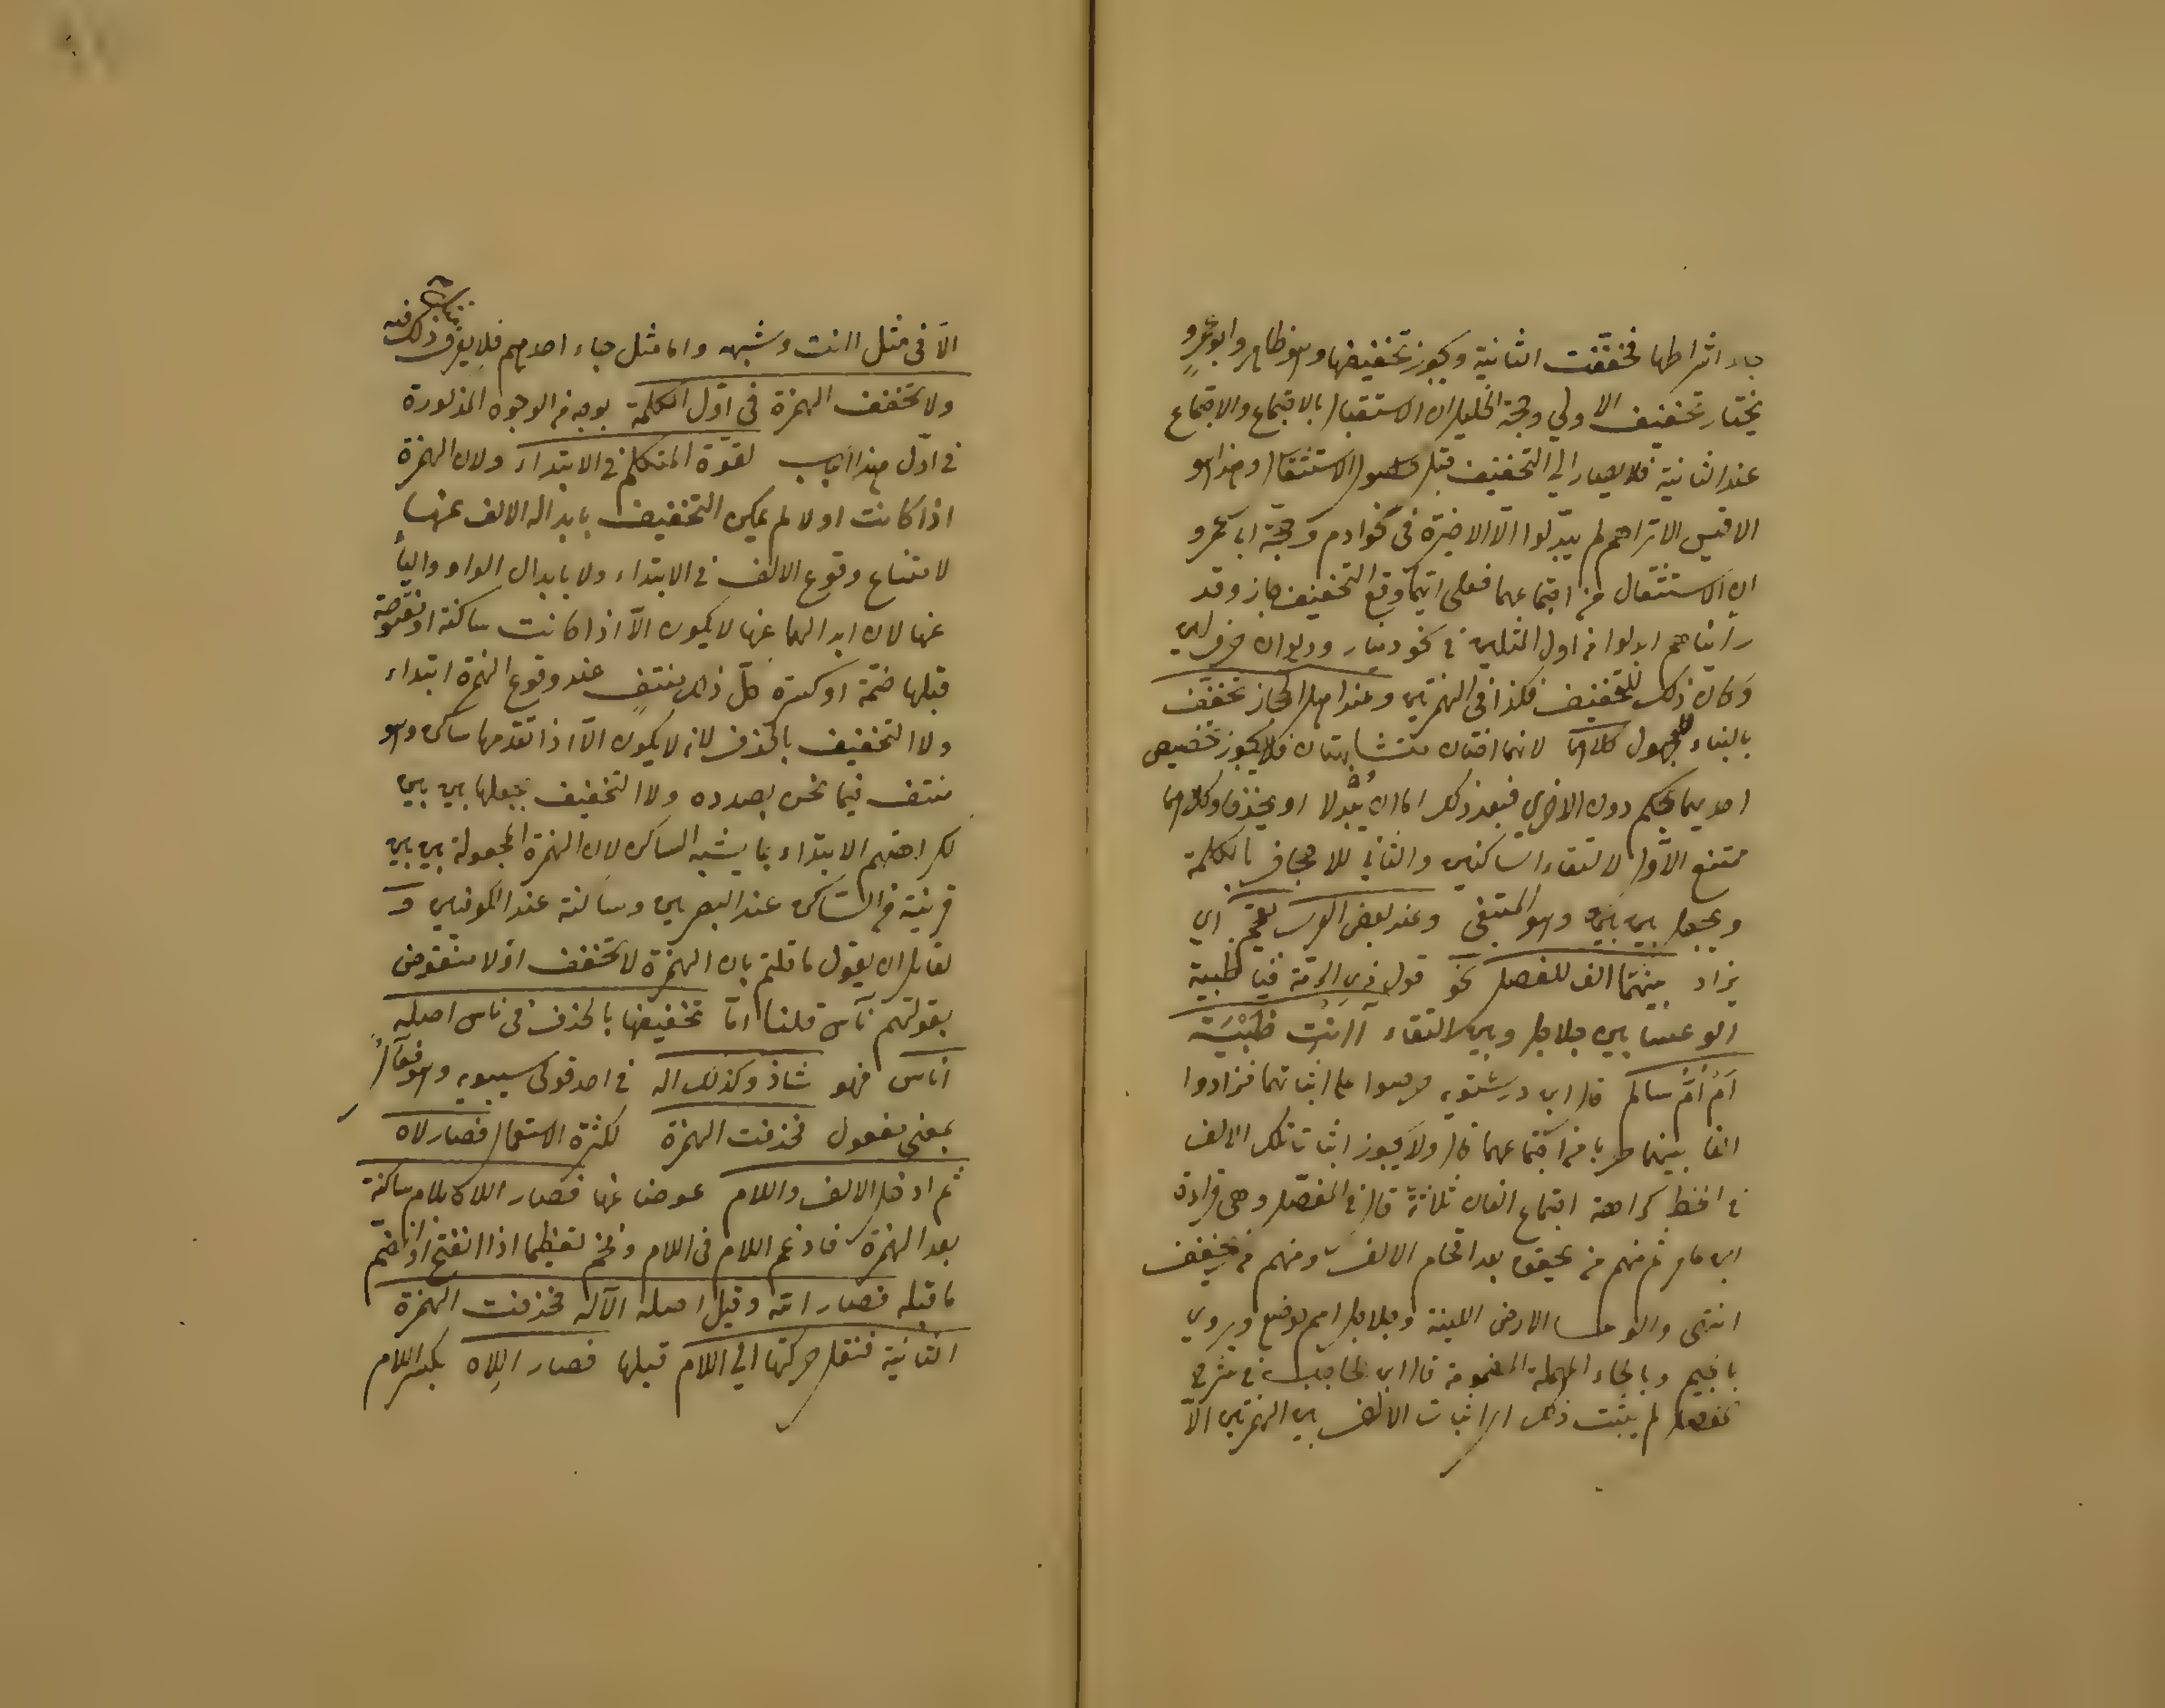 جاء اشراطها فخففت الثانية ويجوز تخفيفها وهو ظاهر وابو عمرو
يختار تخفيف الاولي وحجة الخليل ان الاستثقال بالاجتماع والاجتماع
عند الثانية فلا يصار الي التخفيف قبل حصول الاستثقال وهذا هو
الاقيس الا تراهم لم يبدلوا الّا الاخيرة فى نحو ادم وحجة ابي عمرو
ان الاستثقال من اجتماعهما فعلى ايهما وقع التخفيف جاز وقد
رأيناهم ابدلوا من اول المثلين في نحو دينار وديوان حرف لين
وكان ذلك للتخفيف فكذا فى الهمزتين وعند اهل الحجاز تخفف
بالبناء للمجهول كلاهما لانهما اختان متشابهتان فلا يجوز تخصيص
احديهما بحكم دون الاخرى فبعد ذلك اما ان تُبْدلا او يحذفا وكلاهما
ممتنع الاول لالتقاء الساكنين والثاني للاجحاف بالكلمة
ويجعل بين بين وهو المبتغى وعند بعض العرب تقحم اي
يزاد بينهما الف للفصل نحو قول ذي الرمّة فيا ظبية
الوعساء بين جلاجل وبين النقاء آأنت ظَبْيَة
اَمْ اُمُّ سالم قال ابن درستويه حرصوا على اثباتهما فزادوا
الفا بينهما هربا من اجتماعهما قال ولا يجوز اثبات تلك الالف
في الخط كراهة اجتماع الفات ثلاثة قال في المفصّل وهى قراءة
ابن عامر ثم منهم من يحقق بعد اقحام الالف ومنهم من يخفف
انتهى والوعساء الارض اللينة وجلاجل اسم موضع ويروي
بالجيم وبالحاء المهملة المضمومة قال ابن الحاجب في شرح
المفصل لم يثبت ذلك اي اثبات الالف بين الهمزتين الّا
الّا فى مثل اانت وشبهه واما مثل جاء احدهم فلا يعرف ذلك فيه
ولا تخفف الهمزة فى اوّل الكلمة بوجه من الوجوه المذكورة
في اوّل هذا الباب لقوّة المتكلم في الابتداء ولان الهمزة
اذا كانت اولا لم يمكن التخفيف بابدال الالف عنها
لامتناع وقوع الالف في الابتداء ولا بابدال الواو والياء
عنها لان ابدالهما عنها لا يكون الّا اذا كانت ساكنة او مفتوحة
قبلها ضمّة او كسرة كلّ ذلك منتفٍ عند وقوع الهمزة ابتداء
ولا التخفيف بالحذف لانه لا يكون الّا اذا تقدمها ساكن وهو
منتف فيما نحن بصدده ولا التخفيف بجعلها بين بين
لكراهتهم الابتداء بما يشبه الساكن لان الهمزة المجعولة بين بين
قريبة من الساكن عند البصريين وساكنة عند الكوفيين و
لقايل ان يقول ما قلتم بان الهمزة لا تخفف اولا منقوض
بقولهم ناس قلنا امّا تخفيفها بالحذف فى ناس اصله
اناس فهو شاذ وكذلك اله في احد قولى سيبويه وهو فعال
بمعنى مفعول فحذفت الهمزة لكثرة الاستعمال فصار لاه
ثم ادخل الالف واللام عوضا عنها فصار اللاه بلام ساكنة
بعد الهمزة فادغم اللام فى اللام وفخم تعظيما اذا انفتح او انضمّ
ما قبله فصار اللّه وقيل اصله الآله فحذفت الهمزة
الثانية فنقل حركتها الي اللام قبلها فصار اللِلاه بكسر اللام